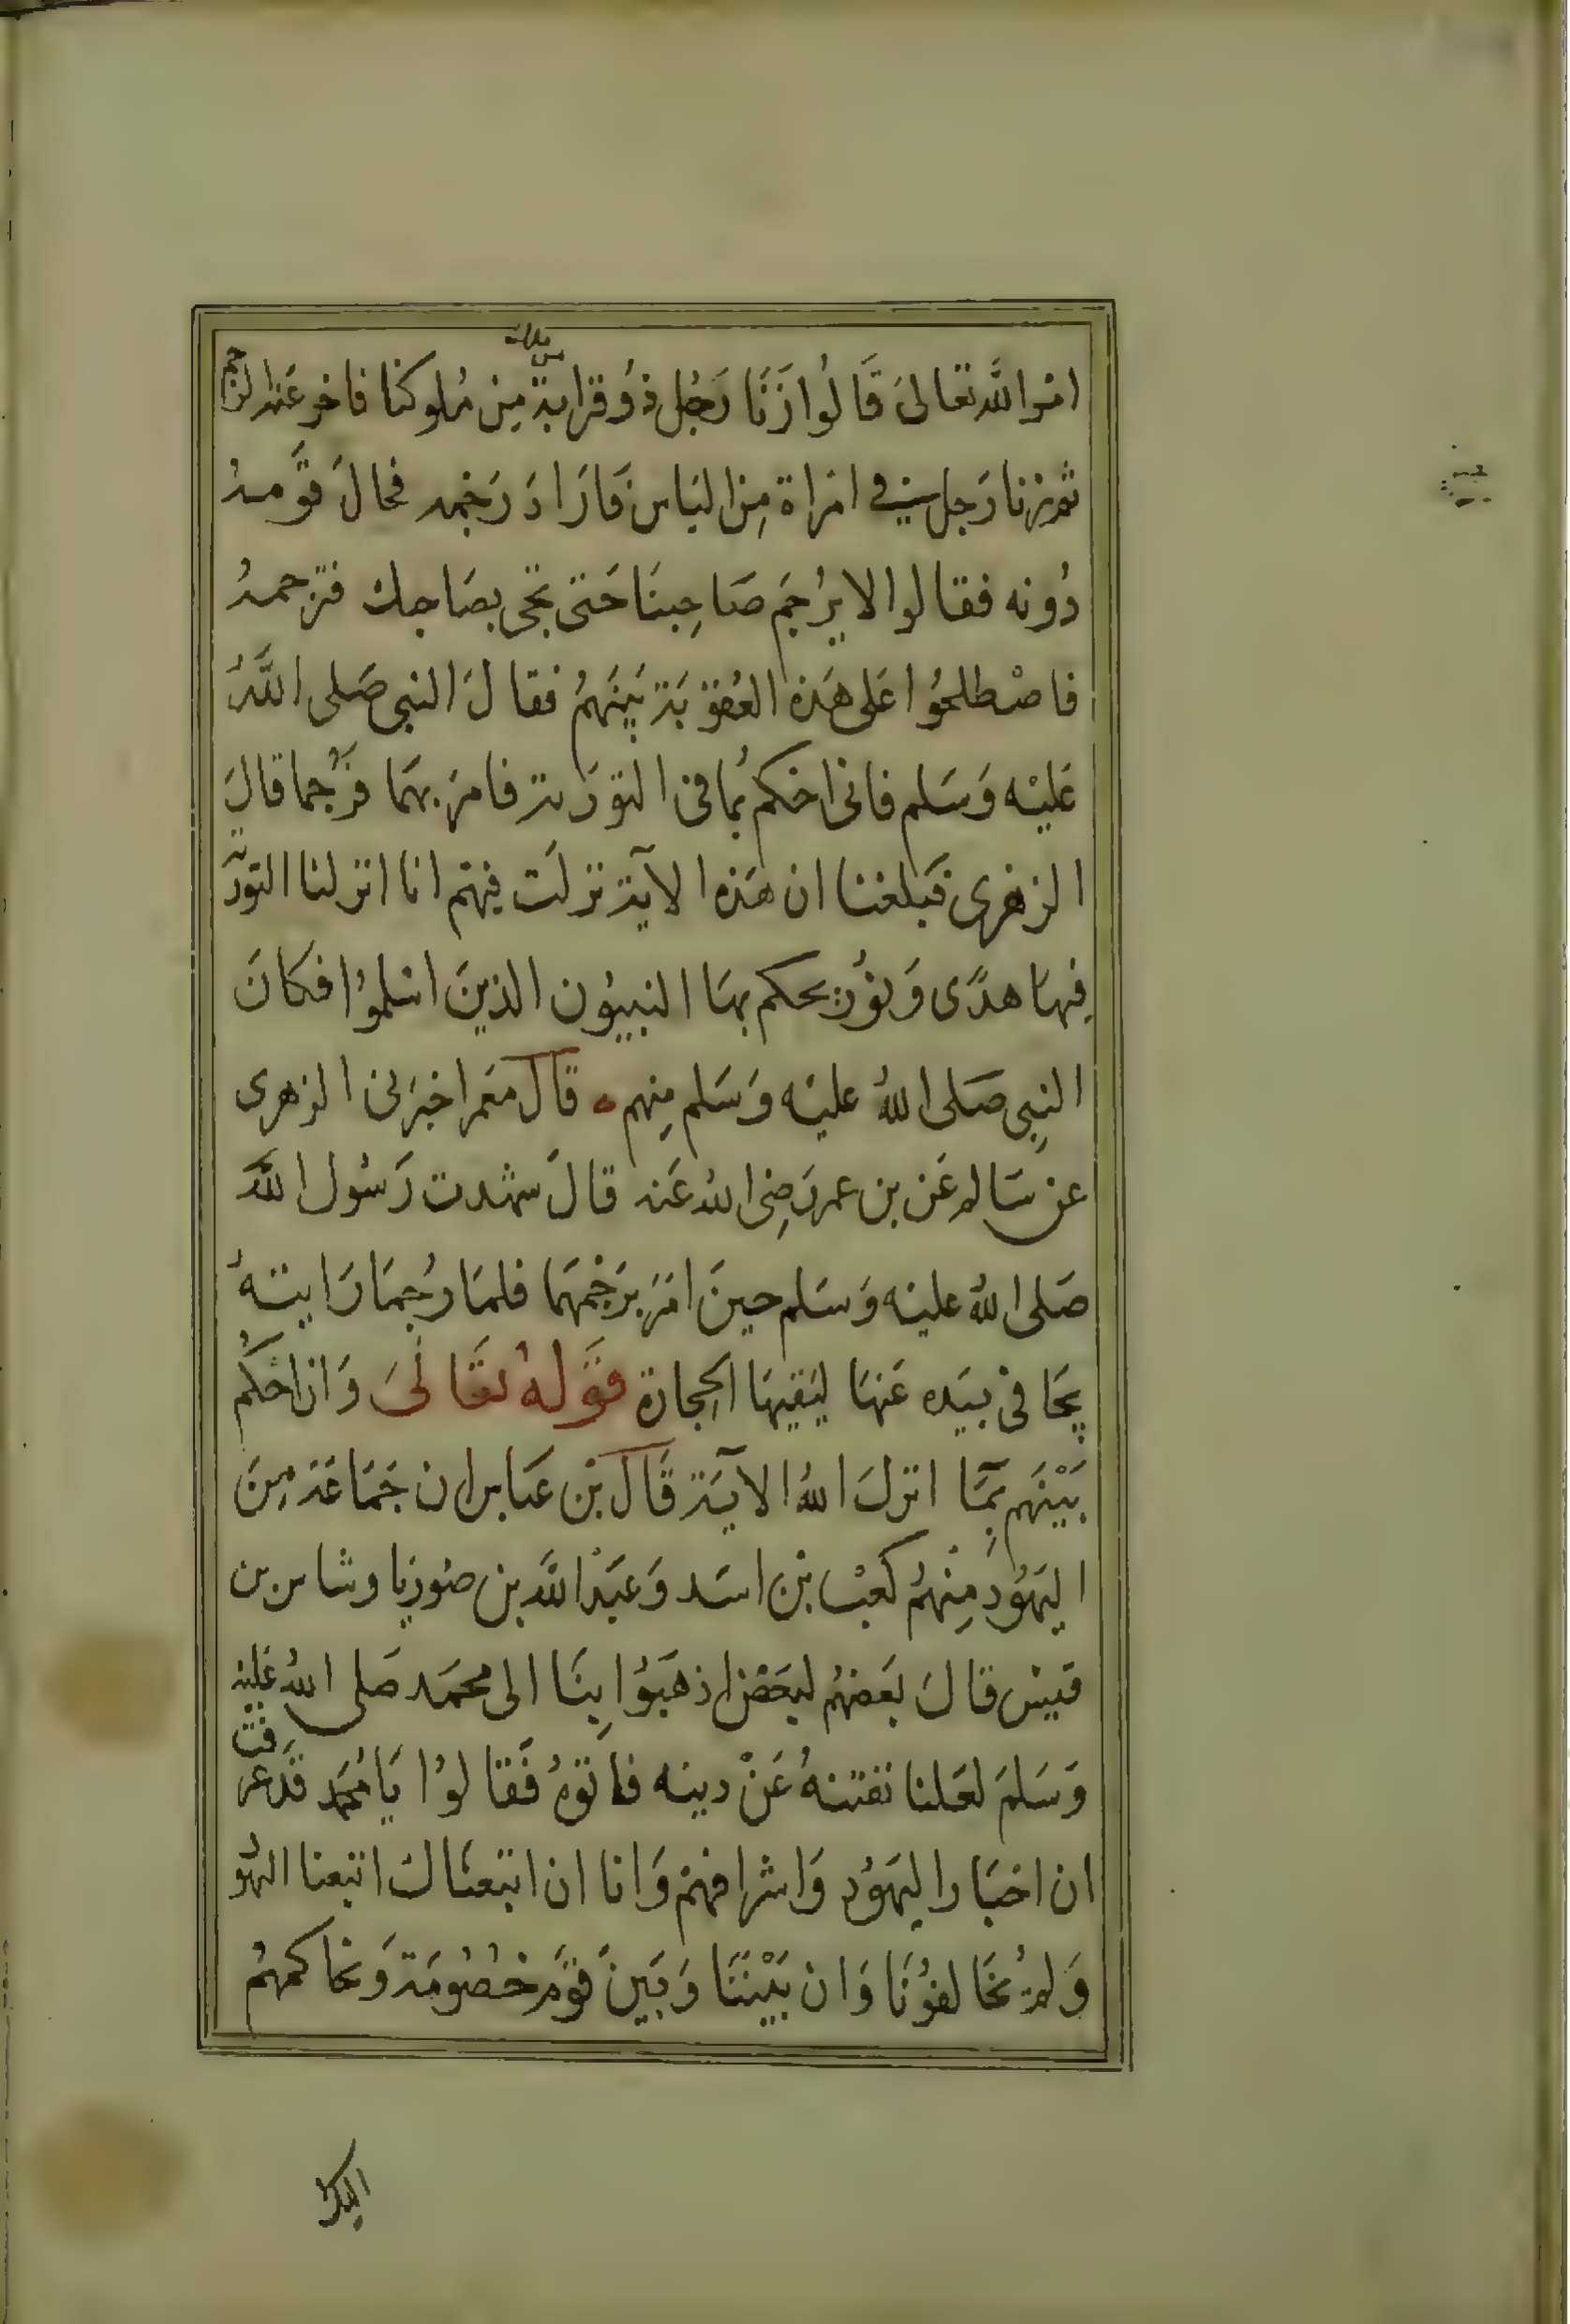 امر الله تعالى قَالُوا زَنَا رَجُل ذُو قرابة مِن مُلوكنا فاخر عَنه الرجم
ثم زنا رَجل في امراة مِن الناس فَارَادَ رَجمه فحالَ قَومهُ
دُونه فقالوا لا يرُجَم صَاحِبنَا حَتى تجى بصَاحبك فترجمهُ
فاصْطلحُوا عَلى هَذه العُقوبَة بَينَهمُ فقالَ النبى صَلى اللَّهُ
عَليْه وَسَلم فانى احكم بمُا فى التورَىة فامرَ بهمَا فرُجما قالَ
الزهرى فَبلغنا ان هَذه الآية نزلَت فيهم انا انزلنا التورَية
فِيهَا هدًى وَنوُر يحكم بهَا النبيوُن الذينَ اسْلموُا فكانَ
النبِى صَلى اللهُ عليْه وَسَلم مِنهم ٥ قَالَ مَعمر اخبرَنى الزهرى
عن سَالم عَن بن عمر رَضِى اللهُ عَنه قالَ شهدت رَسُول اللَّه
صَلى اللهُ عليْه وَسَلم حينَ امَرَ برَجْمهمَا فلمَا رُجمَا رَايتهُ
يجَافى بيَده عَنهَا ليَقيهَا الحِجَارة قَولهُ تَعَالَى وَان احْكُم
بَيْنَهم بمَِا انزلَ اللهُ الآيَة قَالَ بْن عَباس ان جَمَاعَة مِنَ
اليَهوُد مِنْهمُ كَعبْ بْن اسَد وَعَبْد اللَّه بن صُوريَا وشاس بن
قيسْ قالَ بَعضهُم لبعَضْ اذهَبوُا بِنَا الى محمَد صَلى اللهُ عَليْه
وَسَلمَ لعَلنا نفتنهُ عَنْ دينه فاتوَهُ فَقالوُا يَا مُحَمد قَد عرفت
ان احبَار اليهَوُد وَاشرافهمْ وَانا ان اتبعنَاكَ اتبعنا اليهُو
وَلم يُخَالفوُنَا وَان بَيْننَا وَبَينَ قوَم خصُومَة وَنحاكمهمُ
اليك